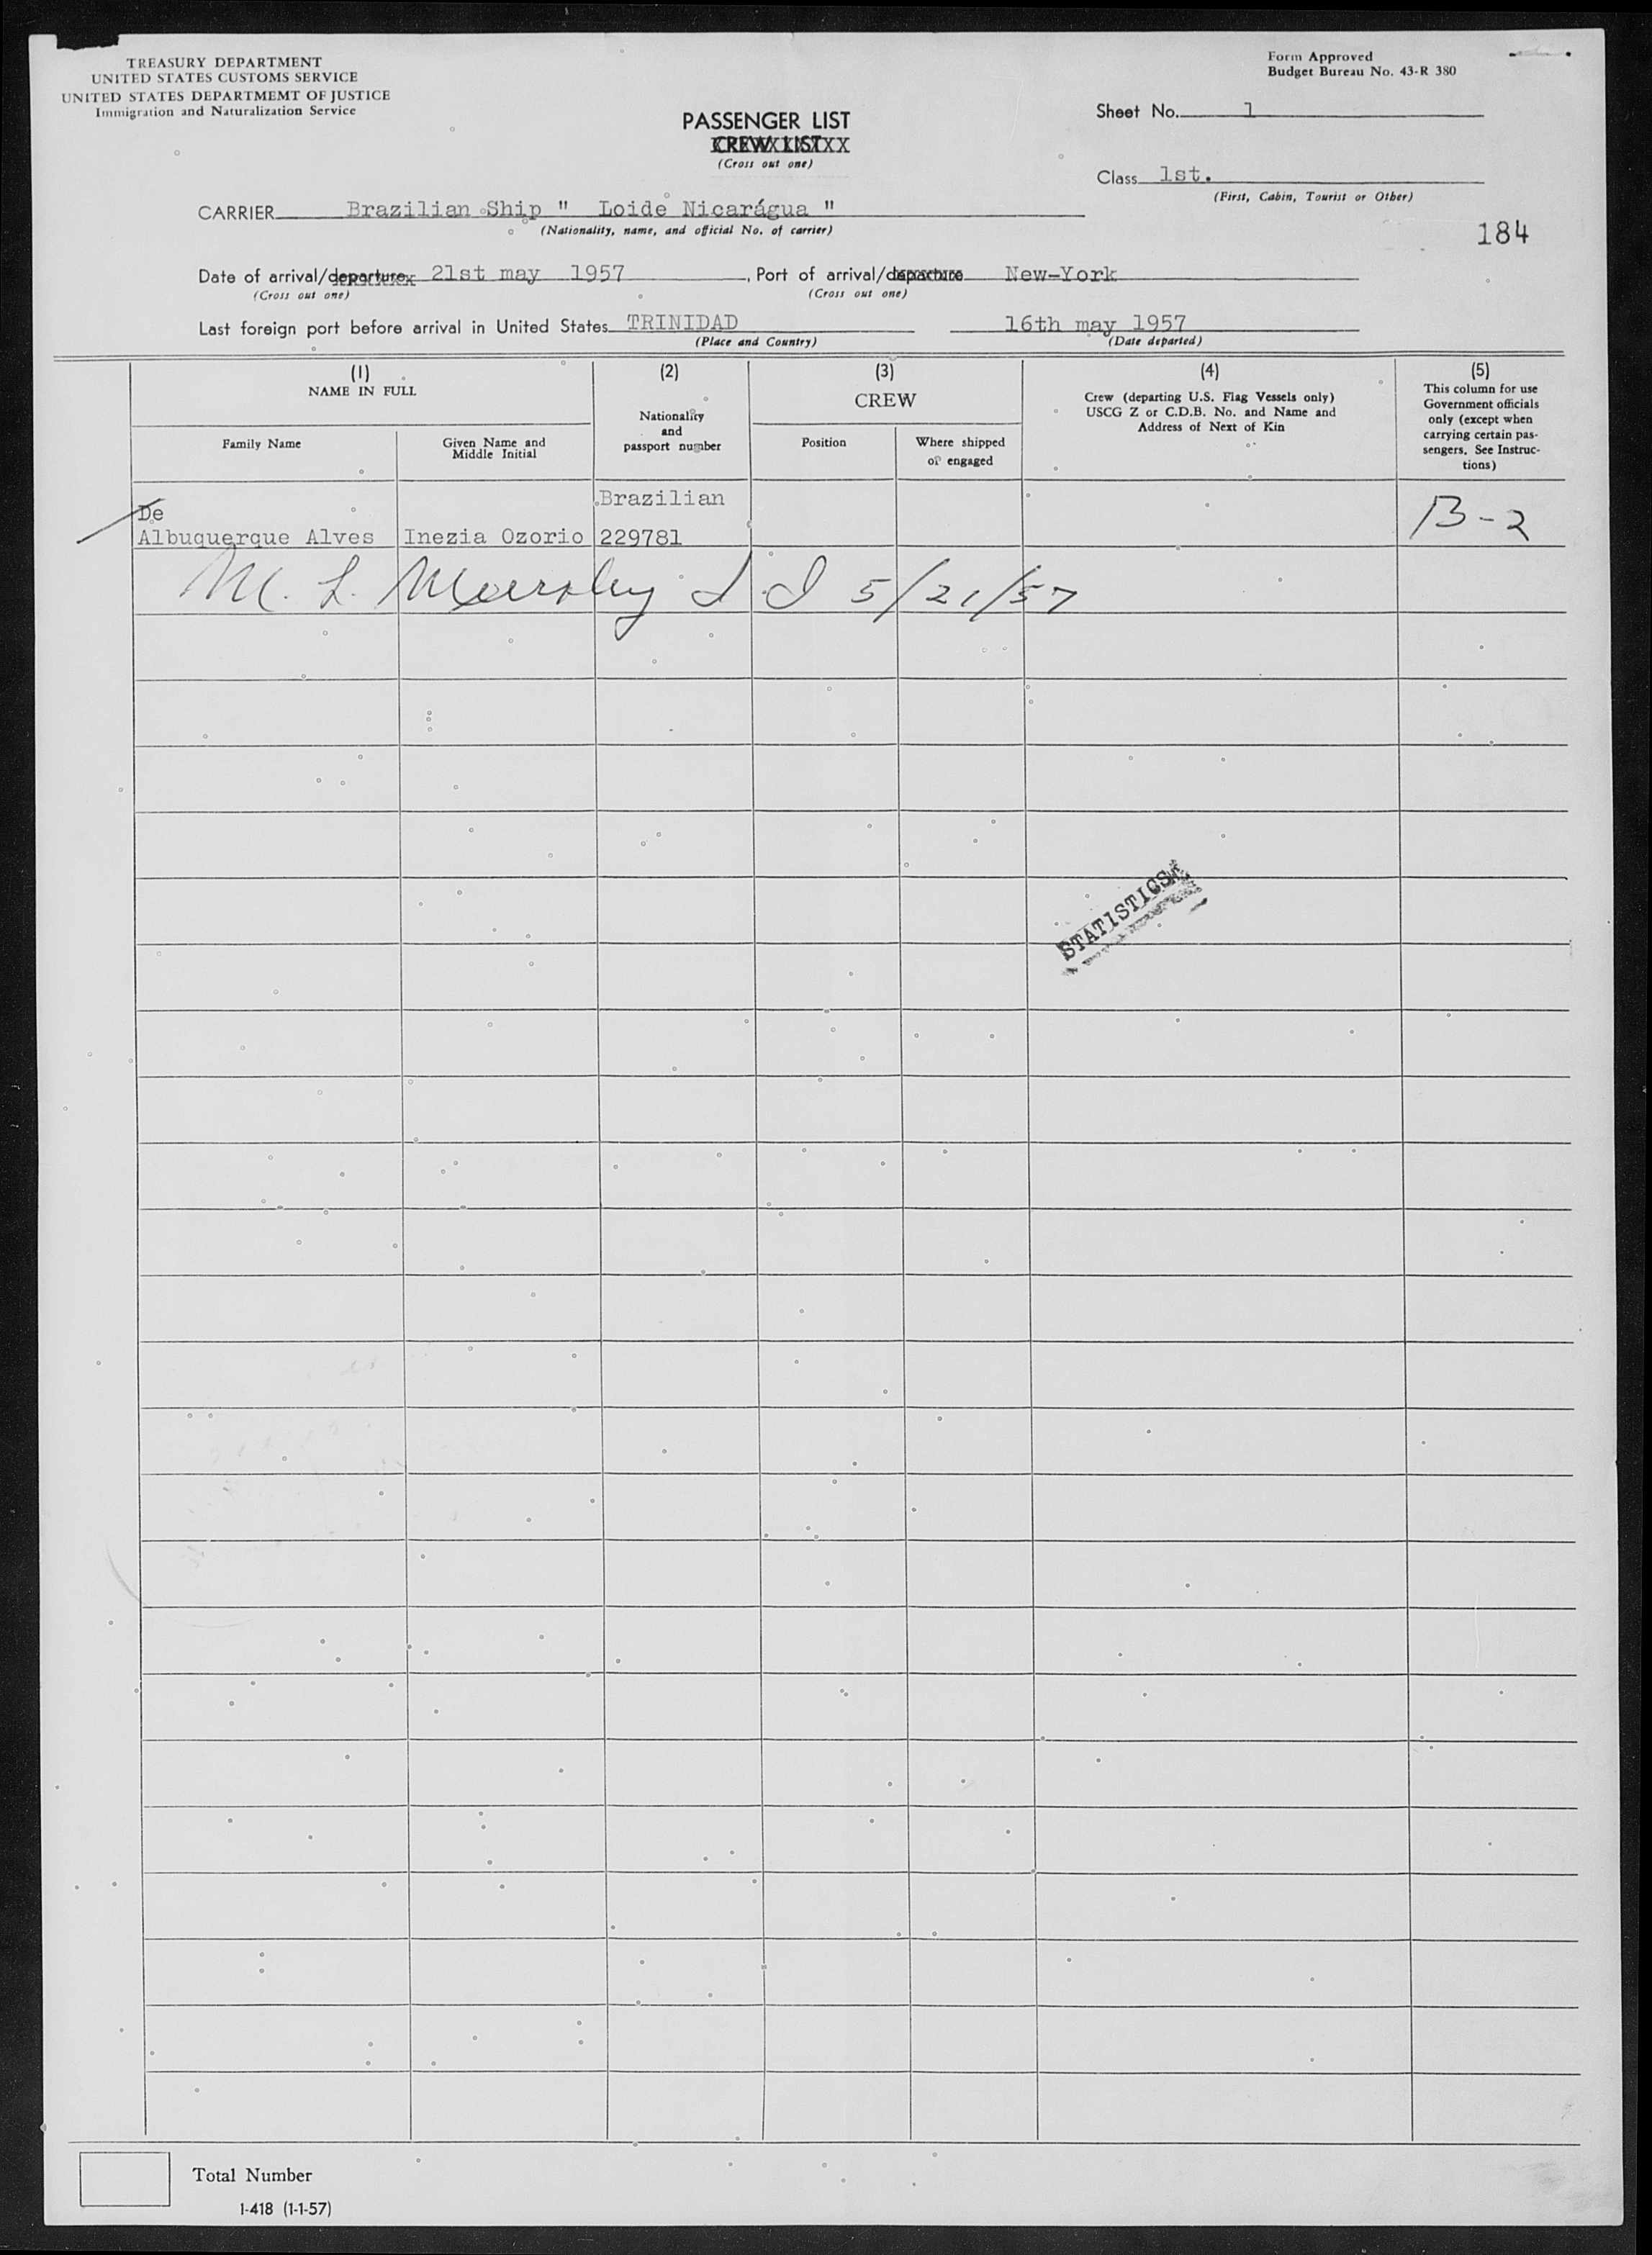 TREASURY DEPARTMENT
UNITED STATES CUSTOMS SERVICE
UNITED STATES DEPARTMEMT OF JUSTICE
Immigration and Naturalization Service
Form Approved
Budget Bureau No. 43-R 380
PASSENGER LIST
CREW LIST
(Cross out one)
Sheet No. 1
Class 1st.
(First, Cabin, Tourist or Other)
CARRIER Brazilian Ship " Loide Nicarágua "
(Nationality, name, and official No. of carrier)
184
Date of arrival/departure 21st may 1957, Port of arrival/departure New-York
(Cross out one) (Cross out one)
Last foreign port before arrival in United States TRINIDAD 16th may 1957
(Place and Country) (Date departed)
(1)
NAME IN FULL
Family Name
Given Name and
Middle Initial
(2)
Nationality
and
passport number
(3)
CREW
Position
Where shipped
or engaged
(4)
Crew (departing U.S. Flag Vessels only)
USCG Z or C.D.B. No. and Name and
Address of Next of Kin
(5)
This column for use
Government officials
only (except when
carrying certain pas-
sengers. See Instruc-
tions)
De Brazilian B-2
Albuquerque Alves Inezia Ozorio 229781
M. L. 5/21/57
STATISTICS
Total Number
I-418 (1-1-57)